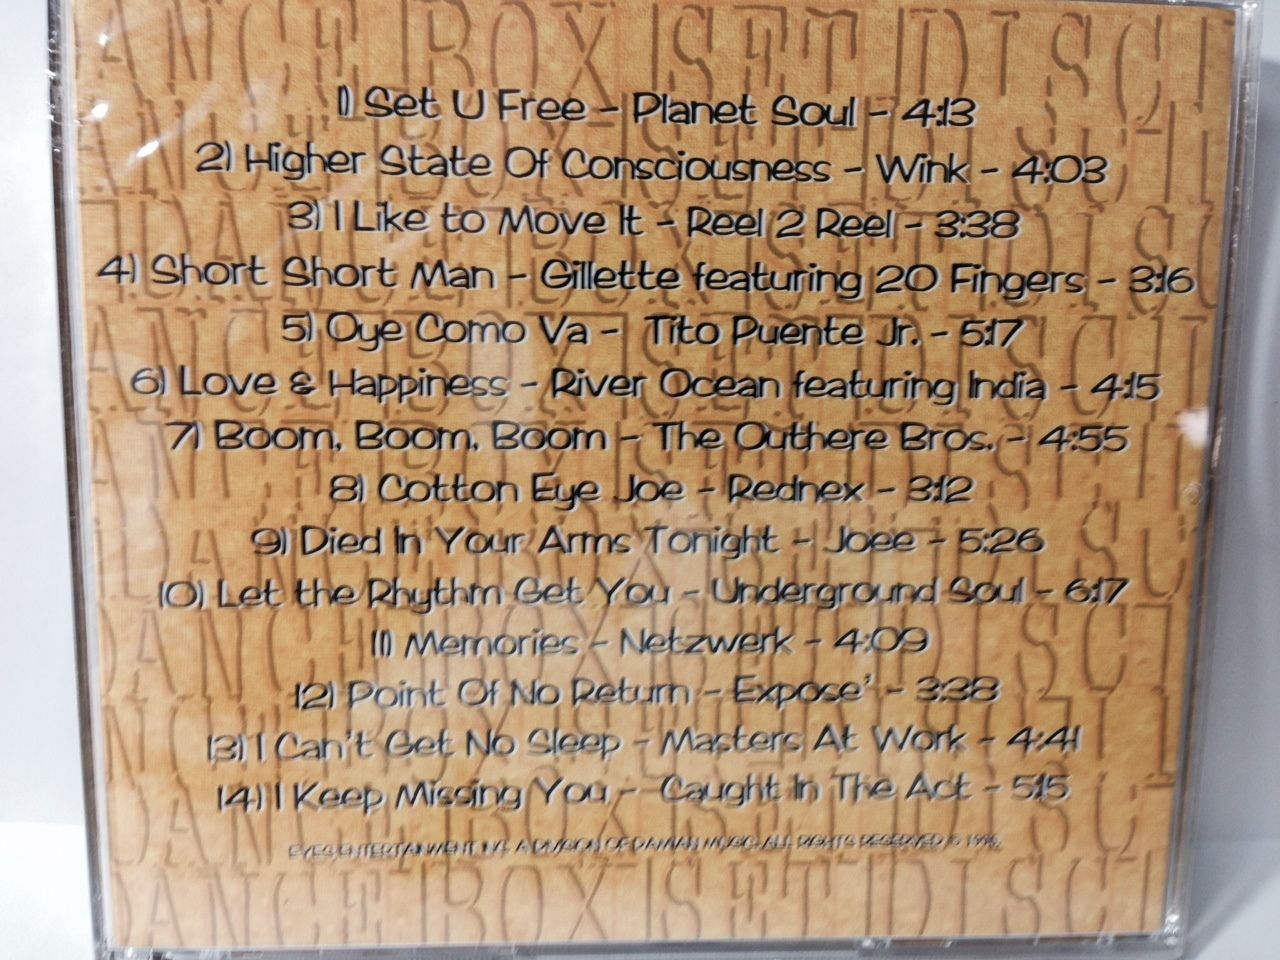 1) Set U Free - Planet Soul - 4:13
2) Higher State Of Consciousness - Wink - 4:03
3) I Like to Move It - Reel 2 Reel - 3:38
4) Short Short Man - Gillette featuring 20 Fingers - 3:16
5) Oye Como Va - Tito Puente Jr. - 5:17
6) Love & Happiness - River Ocean featuring India - 4:15
7) Boom, Boom, Boom - The Outhere Bros. - 4:55
8) Cotton Eye Joe - Rednex - 3:12
9) Died In Your Arms Tonight - Joee - 5:26
10) Let the Rhythm Get You - Underground Soul - 6:17
11) Memories - Netzwerk - 4:09
12) Point Of No Return - Expose' - 3:38
13) I Can't Get No Sleep - Masters At Work - 4:41
14) I Keep Missing You - Caught In The Act - 5:15
EYES ENTERTAINMENT INC. A DIVISION OF DAMIAN MUSIC. ALL RIGHTS RESERVED © 1996.
DANCE BOX SET DISC 1